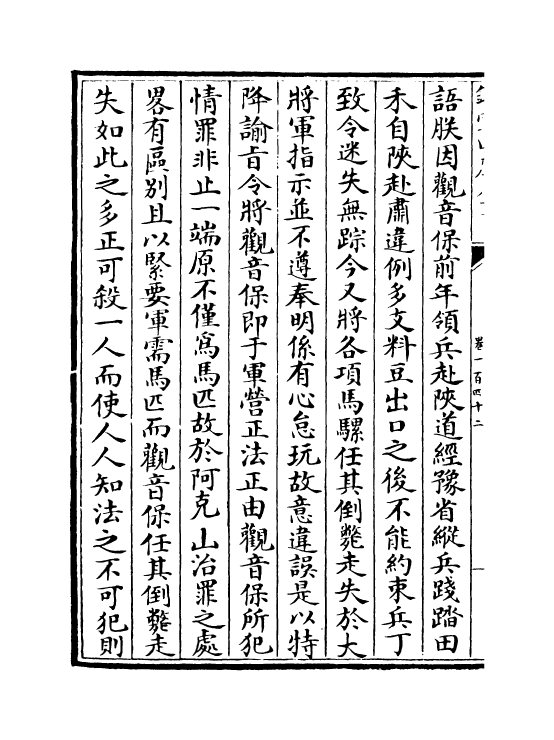 卷一百四十二
一
語朕因觀音保前年領兵赴陜道經豫省縱兵踐踏田
禾自陜赴肅違例多支料豆出口之後不能約束兵丁
致令迷失無踪今又將各項馬騾任其倒斃走失於大
將軍指示並不遵奉明係有心怠玩故意違誤是以特
降諭旨令將觀音保即于軍營正法正由觀音保所犯
情罪非止一端原不僅為馬匹故於阿克山治罪之處
畧有區别且以緊要軍需馬匹而觀音保任其倒斃走
失如此之多正可殺一人而使人人知法之不可犯則